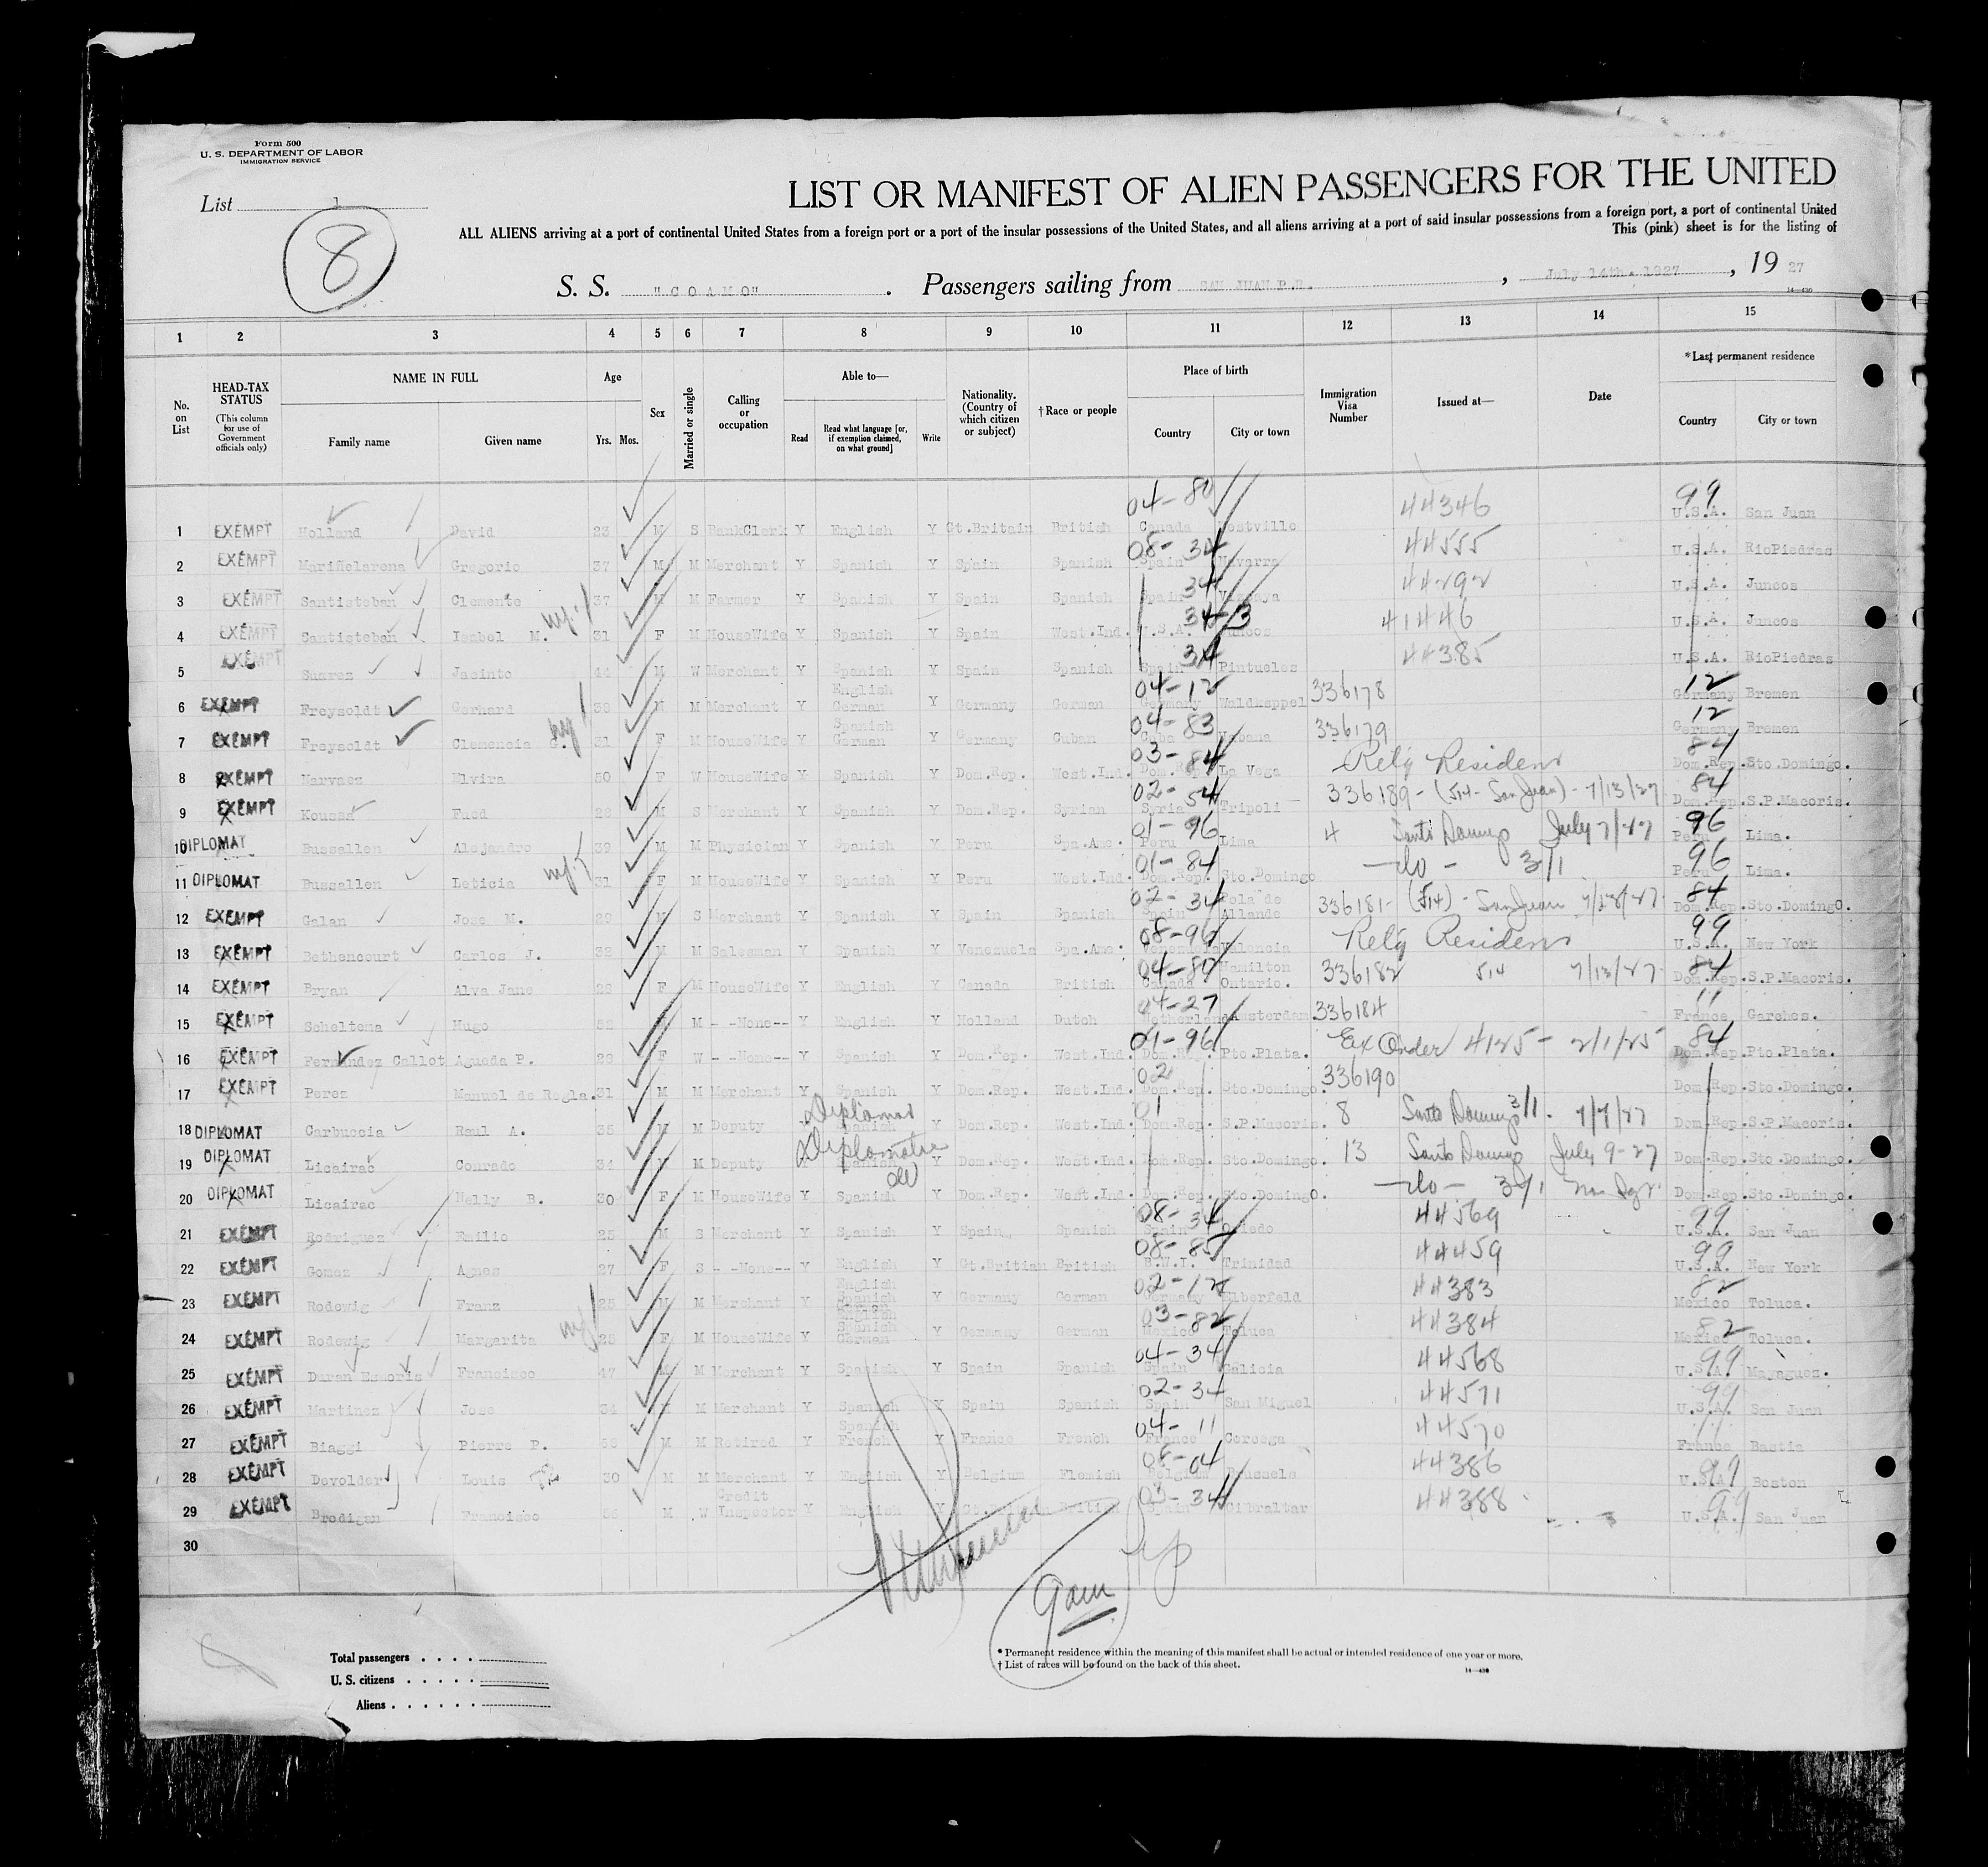 Form 500
U. S. DEPARTMENT OF LABOR
IMMIGRATION SERVICE
List 1
8
LIST OR MANIFEST OF ALIEN PASSENGERS FOR THE UNITED
ALL ALIENS arriving at a port of continental United States from a foreign port or a port of the insular possessions of the United States, and all aliens arriving at a port of said insular possessions from a foreign port, a port of continental United
This (pink) sheet is for the listing of
S. S. "COAMO" . Passengers sailing from SAN JUAN P.R. , July 14th. 1927 , 19 27
14—430
1 2 3 4 5 6 7 8 9 10 11 12 13 14 15
No. on List
HEAD-TAX STATUS (This column for use of Government officials only)
NAME IN FULL
Family name Given name
Age
Yrs. Mos.
Sex
Married or single
Calling or occupation
Able to—
Read Read what language [or, if exemption claimed, on what ground] Write
Nationality. (Country of which citizen or subject)
†Race or people
Place of birth
Country City or town
Immigration Visa Number
Issued at—
Date
*Last permanent residence
Country City or town
1 EXEMPT Holland David 23 M S BankClerk Y English Y Gt.Britain British 04-80 Canada Westville 44346 99 U.S.A. San Juan
2 EXEMPT Gregorio 37 M M Merchant Y Spanish Y Spain Spanish 08-34 Spain Navarra 44555 U.S.A. RioPiedras
3 EXEMPT Santisteban Clemente 37 M M Farmer Y Spanish Y Spain Spanish 34 Spain 44292 U.S.A. Juncos
4 EXEMPT Santisteban Isabel M. 31 F M HouseWife Y Spanish Y Spain West.Ind. 34-3 U.S.A. Juncos 41446 U.S.A. Juncos
5 EXEMPT Suarez Jacinto 44 M W Merchant Y Spanish Y Spain Spanish 34 Spain Pintueles 44385 U.S.A. RioPiedras
6 EXEMPT Freysoldt Gerhard 38 M M Merchant Y English German Y Germany German 04-12 Germany Waldkappel 336178 12 Germany Bremen
7 EXEMPT Freysoldt Clemencia G. 31 F M HouseWife Y Spanish German Y Germany Cuban 04-83 Cuba Habana 336179 12 Germany Bremen
8 EXEMPT Narvaez Elvira 50 F W HouseWife Y Spanish Y Dom.Rep. West.Ind. 03-84 Dom.Rep. La Vega Retg Resident 84 Dom.Rep. Sto.Domingo.
9 EXEMPT Koussa Fued 28 M S Merchant Y Spanish Y Dom.Rep. Syrian 02-54 Syria Tripoli 336189-(514-San Juan)-7/13/27 84 Dom.Rep. S.P.Macoris.
10 DIPLOMAT Bussallen Alejandro 39 M M Physician Y Spanish Y Peru Spa.Ame. 01-96 Peru Lima 4 Santo Domingo July 7/27 96 Peru Lima.
11 DIPLOMAT Bussallen Leticia 31 F M HouseWife Y Spanish Y Peru West.Ind. 01-84 Dom.Rep. Sto.Domingo -do- 3/1 96 Peru Lima.
12 EXEMPT Galan Jose M. 29 M S Merchant Y Spanish Y Spain Spanish 02-34 Spain Pola de Allande 336181-(514)-San Juan 7/13/27 84 Dom.Rep. Sto.Domingo.
13 EXEMPT Bethencourt Carlos J. 32 M M Salesman Y Spanish Y Venezuela Spa.Ame. 08-96 Venezuela Valencia Retg Resident 99 U.S.A. New York
14 EXEMPT Bryan Alva Jane 29 F M HouseWife Y English Y Canada British 04-80 Canada Hamilton Ontario. 336182 514 7/13/27 84 Dom.Rep. S.P.Macoris.
15 EXEMPT Scheltema Hugo 52 M M --None-- Y English Y Holland Dutch 04-27 Netherland Amsterdam 336184 11 France Garches.
16 EXEMPT Fernandez Callot Agueda P. 28 F W --None-- Y Spanish Y Dom.Rep. West.Ind. 01-96 Dom.Rep. Pto.Plata. Ex Order 4125-2/1/25 84 Dom.Rep. Pto.Plata.
17 EXEMPT Perez Manuel de Regla. 31 M M Merchant Y Spanish Y Dom.Rep. West.Ind. 02 Dom.Rep. Sto.Domingo. 336190 Dom.Rep. Sto.Domingo.
18 DIPLOMAT Carbuccia Raul A. 35 M M Deputy Diplomat Spanish Y Dom.Rep. West.Ind. 01 Dom.Rep. S.P.Macoris. 8 Santo Domingo 3/1. 7/7/27 Dom.Rep. S.P.Macoris.
19 DIPLOMAT Licairac Conrado 34 M M Deputy Diplomatic Spanish Y Dom.Rep. West.Ind. Dom.Rep. Sto.Domingo. 13 Santo Domingo July 9-27 Dom.Rep. Sto.Domingo.
20 DIPLOMAT Licairac Nelly B. 30 F M HouseWife Y Spanish do Y Dom.Rep. West.Ind. Dom.Rep. Sto.Domingo. -do- 3/1 Dom.Rep. Sto.Domingo.
21 EXEMPT Rodriguez Emilio 25 M S Merchant Y Spanish Y Spain Spanish 08-34 Spain Oviedo 44569 99 U.S.A. San Juan
22 EXEMPT Gomez Agnes 27 F S --None-- Y English Y Gt.Britian British 08-85 B.W.I. Trinidad 44459 99 U.S.A. New York
23 EXEMPT Rodewig Franz M M Merchant Y English Spanish German Y Germany German 02-12 Germany Elberfeld 44383 82 Mexico Toluca.
24 EXEMPT Rodewig Margarita F M HouseWife Y English Spanish German Y Germany German 03-82 Mexico Toluca 44384 82 Mexico Toluca.
25 EXEMPT Duran Esmoris Francisco 47 M M Merchant Y Spanish Y Spain Spanish 04-34 Spain Galicia 44568 99 U.S.A. Mayaguez.
26 EXEMPT Martinez Jose 34 M M Merchant Y Spanish Y Spain Spanish 02-34 Spain San Miguel 44571 99 U.S.A. San Juan
27 EXEMPT Biaggi Pierre P. M M Retired Y Spanish French Y France French 04-11 France Corcega 44570 11 France Bastia
28 EXEMPT Devolder Louis 30 M M Merchant Y English Y Belgium Flemish 08-04 Belgium Brussels 44386 99 U.S.A. Boston
29 EXEMPT Brodigan Francisco M W Credit Inspector Y English Y Gt. Briti 03-34 Spain Gibraltar 44388 99 U.S.A. San Juan
30
Total passengers
U. S. citizens
Aliens
* Permanent residence within the meaning of this manifest shall be actual or intended residence of one year or more.
† List of races will be found on the back of this sheet.
14—430